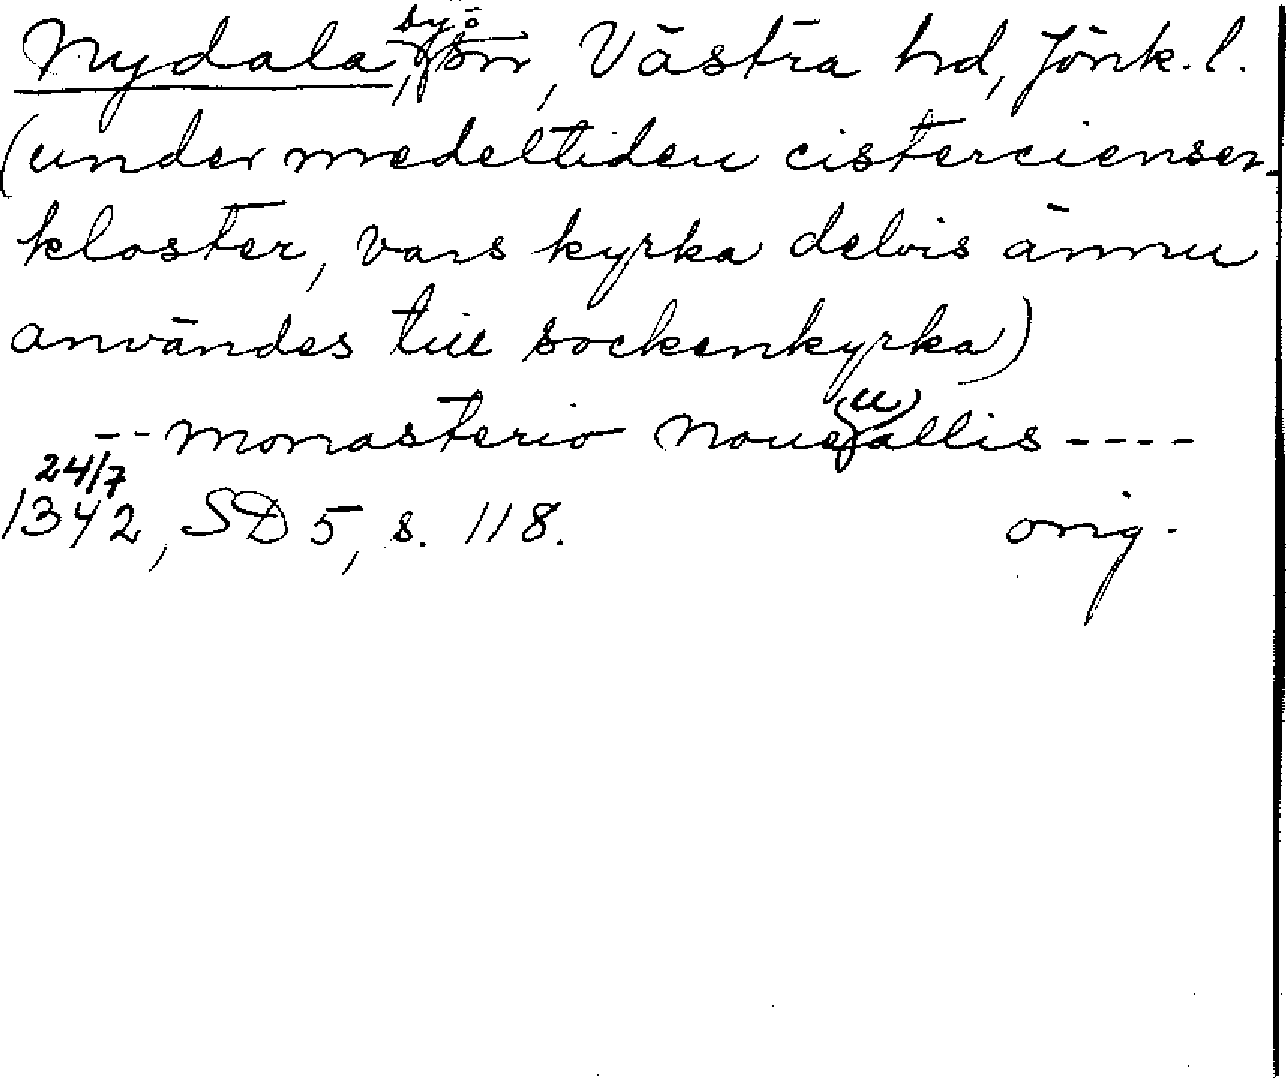 Nydala, sn, Västra hd, Jönk. l.
(under medeltiden cistercienser-
kloster, vars kyrka delvis ännu
användes till sockenkyrka)
-- monasterio noue(u)allis ----
24/7
1342, SD 5, s. 118. orig.